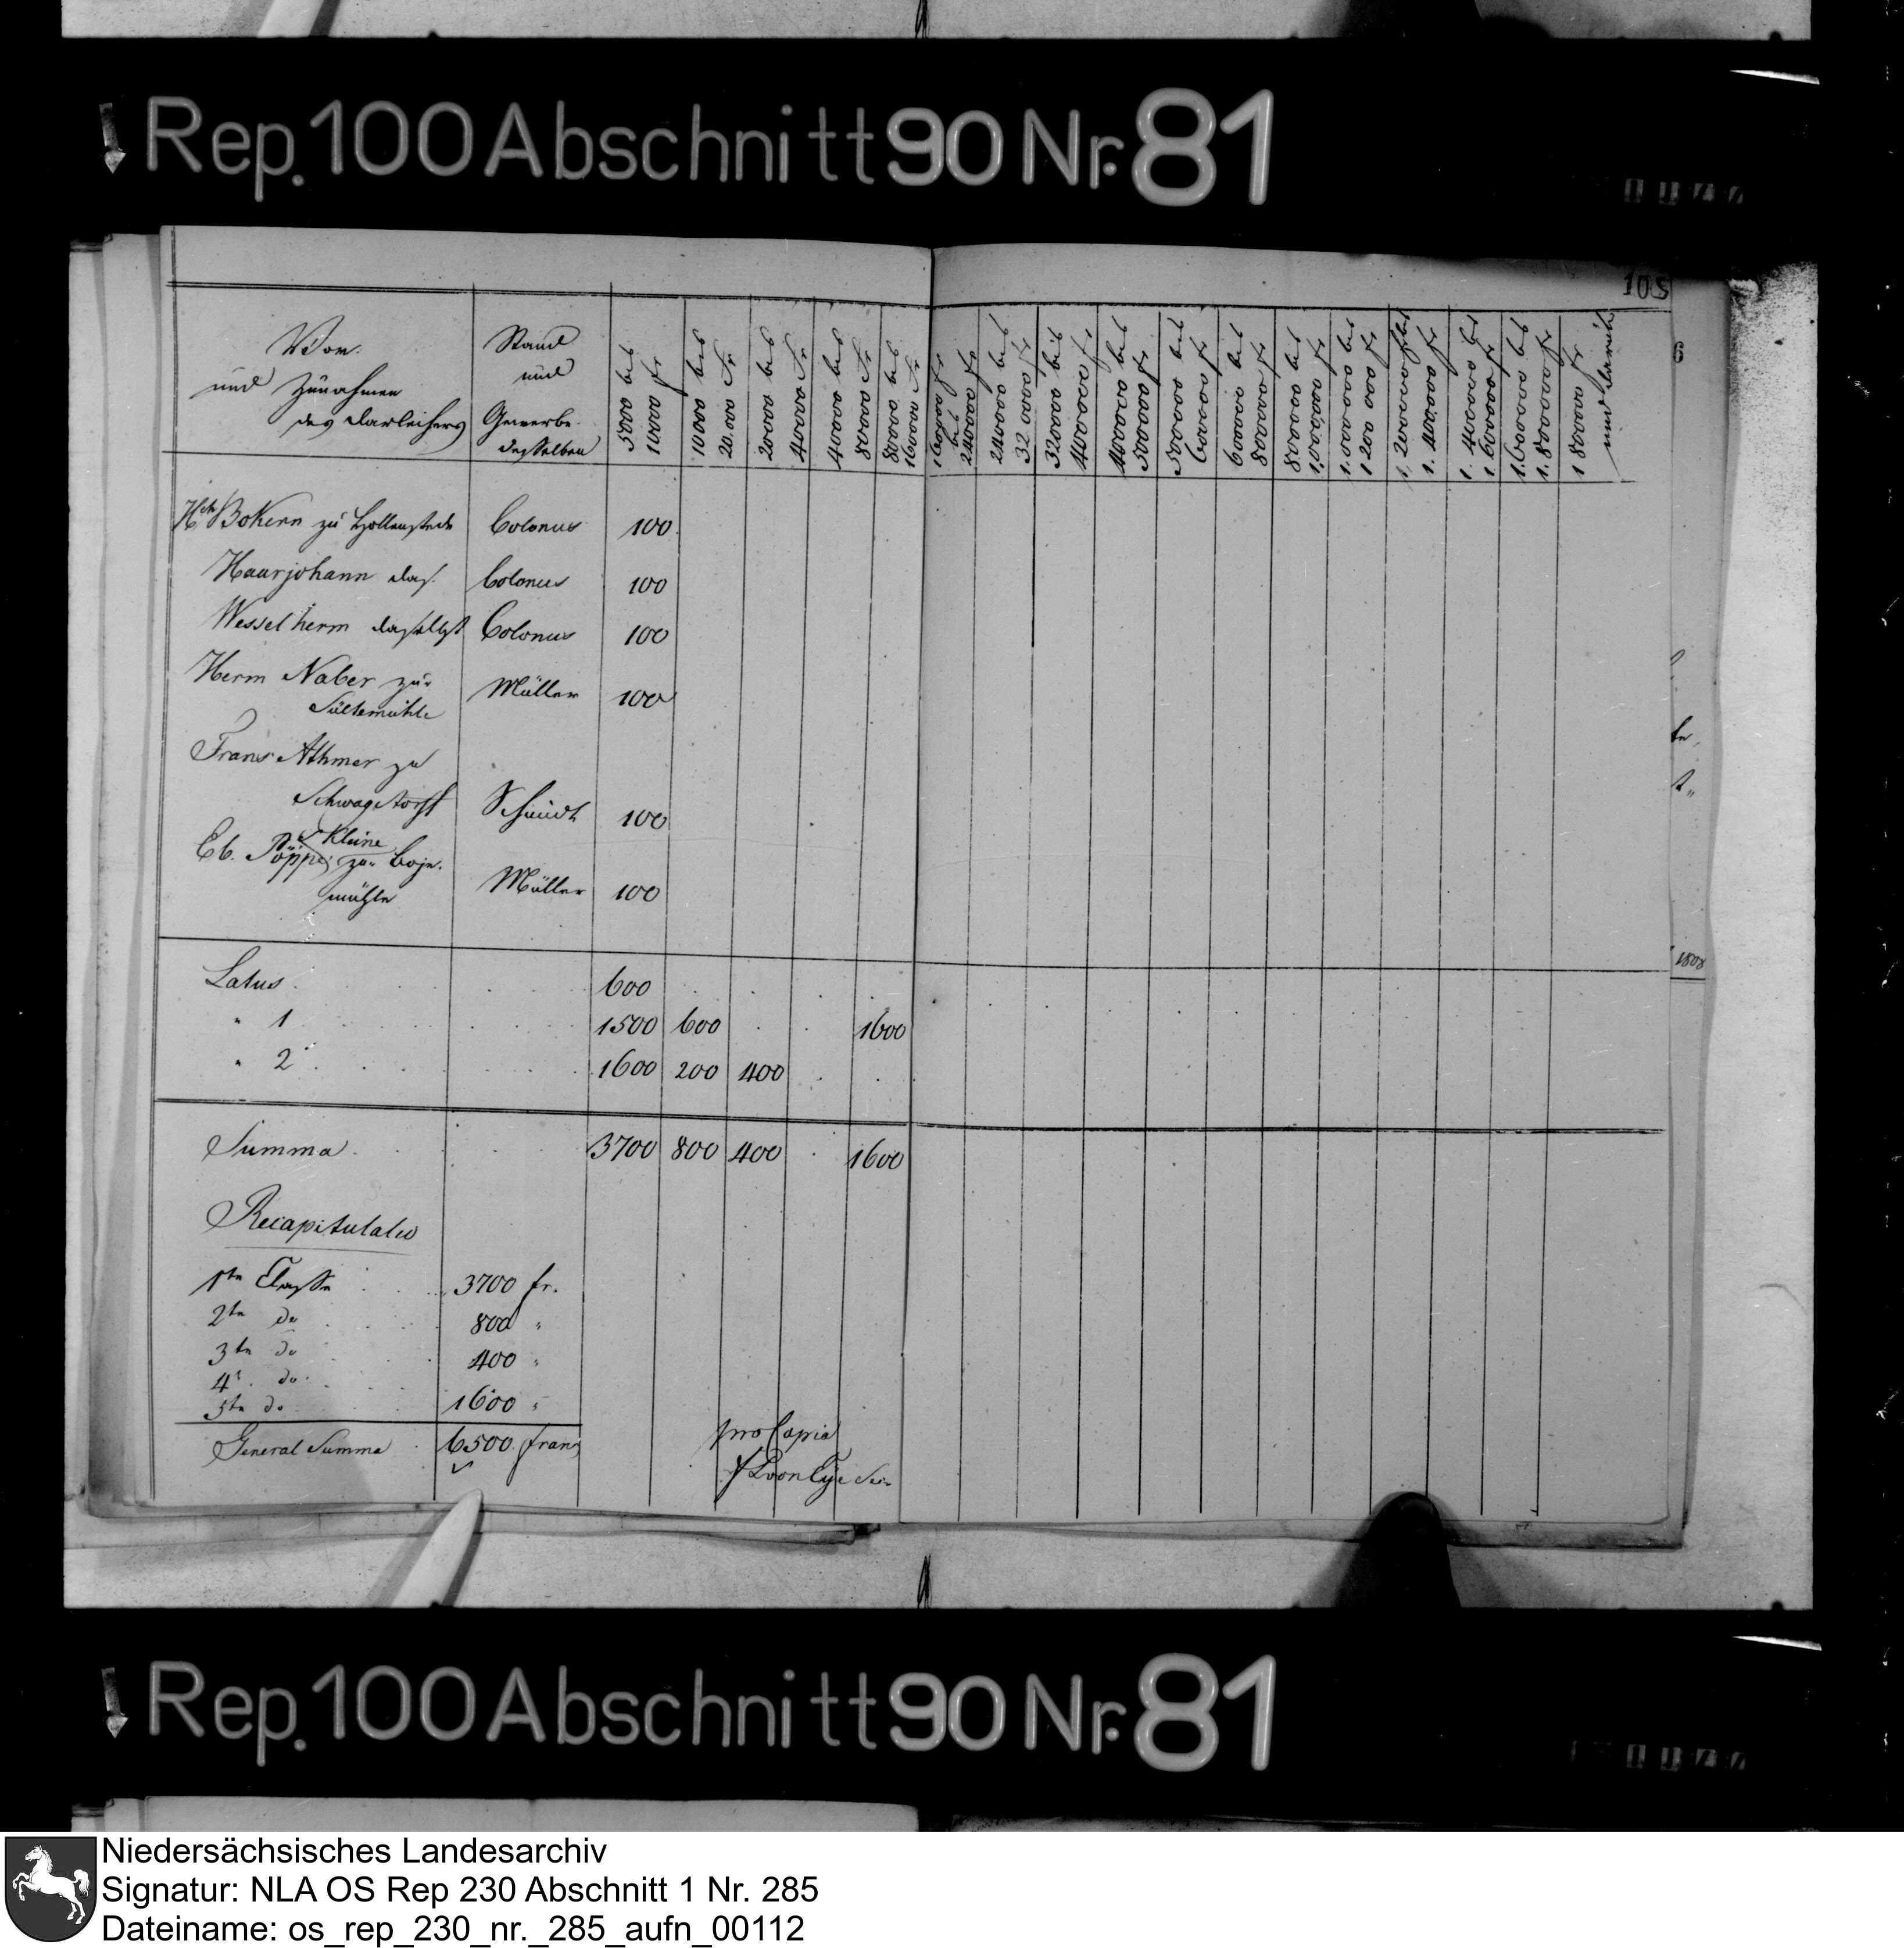 Rep. 100 Abschnitt 90 Nr. 81
105
Vor-
und Zunahmen
des Darleihers
Stand
und
Gewerbe
desselben
5000 bis
10000 fr
10000 bis
20.000 Fr
20000 bis
40000 Fr
40000 bis
80000 Fr
80000 bis
160000 Fr
160000 fr
bis
240000 fr
240000 bis
320000 fr
320000 bis
400000 fr
400000 bis
500000 fr
500000 bis
600000 fr
600000 bis
800000 fr
800000 bis
1,000000 fr
1.000000 bis
1200 000 fr
1,200000 fr bis
1.400000 fr
1.400000 bis
1.600000 fr
1.600000 bis
1.800000 fr
1800000 fr
und darüber
6
Hch Bokern zu Hollenstede Colonus 100
Haarjohann das. Colonus 100
Wesselherm daselbst Colonus 100
Herm Naber zur
Sültemühle Müller 100
Frans Athmer zu
Schwagstorff Schmidt 100
Kleine
Eb. Pöppe zur
mühle Müller 100
1808
Latus 600
" 1 1500 600 1600
" 2 1600 200 400
Summa 3700 800 400 1600
Recapitulatio
1te Classe 3700 fr.
2te do 800 "
3te do 400 "
4t. do.
5te do 1600 "
General Summa 6500 franc
pro Copia
Rep. 100 Abschnitt 90 Nr. 81
Niedersächsisches Landesarchiv
Signatur: NLA OS Rep 230 Abschnitt 1 Nr. 285
Dateiname: os_rep_230_nr._285_aufn_00112